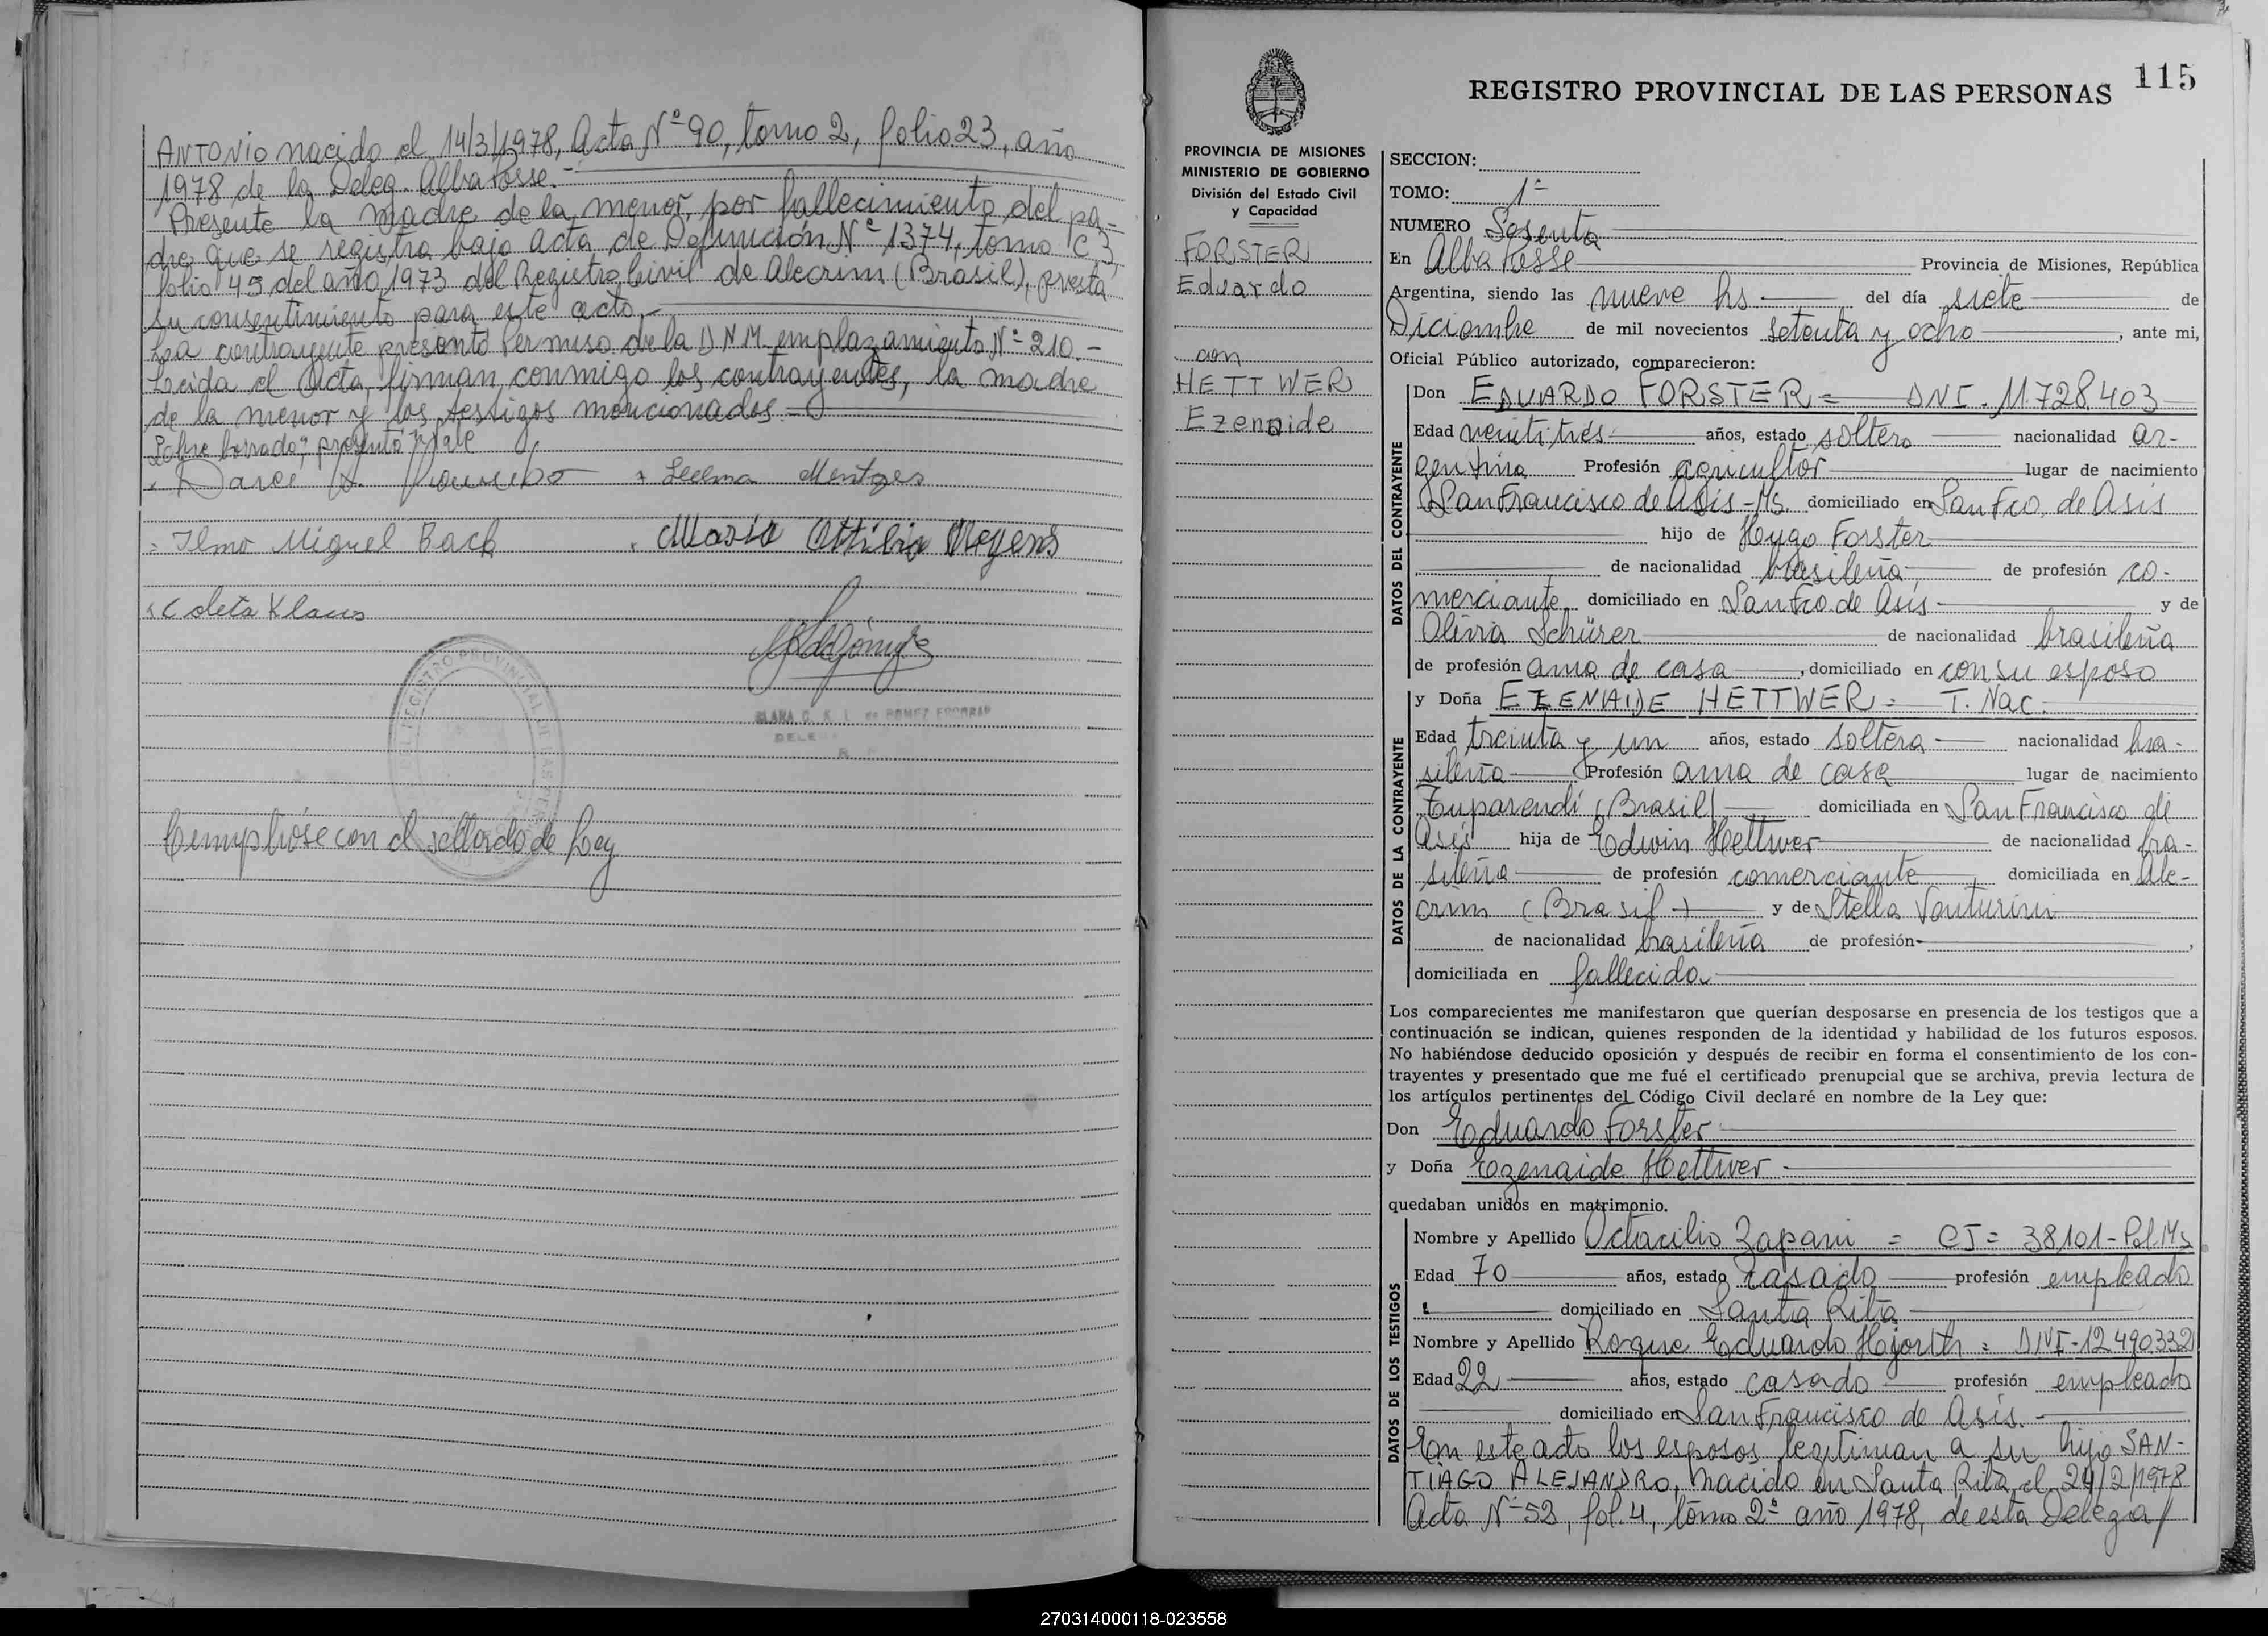 ANTONIO nacido el 14/3/1978, Acta Nº 90, tomo 2, folio 23, año
1978 de la Deleg. Alba Posse.-
Presente la madre de la menor, por fallecimiento del pa-
dre que se registra bajo acta de Defunción Nº 1374, tomo C 3,
folio 45 del año 1973 del Registro Civil de Alecrim (Brasil), presta
su consentimiento para este acto.-
La contrayente presentó Permiso de la D N M emplazamiento Nº 210.-
Leida el Acta, firman conmigo los contrayentes, la madre
de la menor y los testigos mencionados.-
Sobre borrado: "presentó": Vale
Selma Mentges
Ilmo Miguel Bach
Maria Attilia Regens
Coleta Klaus
REGISTRO PROVINCIAL DE LAS PER
CLARA C. K. L. de GOMEZ ESCOBAR
DELE
Cumplióse con el sellado de Ley
115
REGISTRO PROVINCIAL DE LAS PERSONAS
PROVINCIA DE MISIONES
MINISTERIO DE GOBIERNO
División del Estado Civil
y Capacidad
FORSTER
Eduardo
con
HETTWER
Ezenaide
SECCION:
TOMO: 1º
NUMERO Sesenta
En Alba Posse Provincia de Misiones, República
Argentina, siendo las nueve hs del día siete de
Diciembre de mil novecientos setenta y ocho, ante mi,
Oficial Público autorizado, comparecieron:
DATOS DEL CONTRAYENTE
Don EDUARDO FORSTER = DNI. 11.728.403
Edad veinti trés años, estado soltero nacionalidad ar-
gentina Profesión agricultor lugar de nacimiento
San Francisco de Asis - Ms. domiciliado en San Fco. de Asis
hijo de Hugo Forster
de nacionalidad brasileña, de profesión co-
merciante, domiciliado en San Fco. de Asis y de
Olivia Schürer de nacionalidad brasileña
de profesión ama de casa, domiciliado en con su esposo
DATOS DE LA CONTRAYENTE
y Doña EZENAIDE HETTWER = T. Nac.
Edad treinta y un años, estado soltera nacionalidad bra-
sileña Profesión ama de casa lugar de nacimiento
Tuparendí (Brasil) domiciliada en San Francisco de
Asis hija de Edwin Hettwer de nacionalidad bra-
sileña de profesión comerciante, domiciliada en Ale-
crim (Brasil) y de Stella Venturini
de nacionalidad brasileña de profesión- ,
domiciliada en fallecida
Los comparecientes me manifestaron que querían desposarse en presencia de los testigos que a
continuación se indican, quienes responden de la identidad y habilidad de los futuros esposos.
No habiéndose deducido oposición y después de recibir en forma el consentimiento de los con-
trayentes y presentado que me fué el certificado prenupcial que se archiva, previa lectura de
los artículos pertinentes del Código Civil declaré en nombre de la Ley que:
Don Eduardo Forster
y Doña Ezenaide Hettwer
quedaban unidos en matrimonio.
DATOS DE LOS TESTIGOS
Nombre y Apellido Octacilio Zapani = CI = 38101 - Pol. Ms
Edad 70 años, estado casado profesión empleado
domiciliado en Santa Rita
Nombre y Apellido Roque Eduardo Hajorth = DNI - 12.490.332
Edad 22 años, estado casado profesión empleado
domiciliado en San Francisco de Asis.
En este acto los esposos legitiman a su hijo SAN-
TIAGO ALEJANDRO, nacido en Santa Rita el 24/2/1978
Acta Nº 52, fol. 4, tomo 2º año 1978, de esta Delega/
270314000118-023558